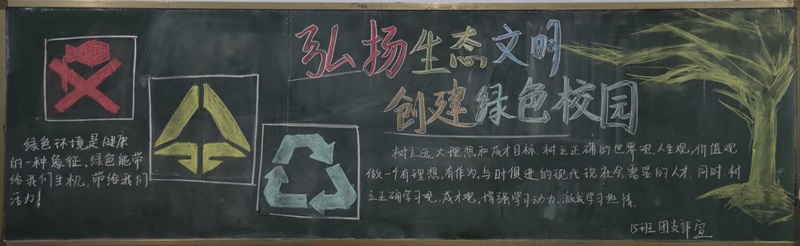 弘扬生态文明
创建绿色校园
绿色环境是健康
的一种象征。绿色能带
给我们生机,带给我们
活力!
树立远大理想和成才目标。树立正确的世界观,人生观,价值观
做一个有理想,有作为,与时俱进的现代现社会需要的人才。同时,树
立正确学习观、成才观,增强学习动力、激发学习热情。
15班 团支部宣